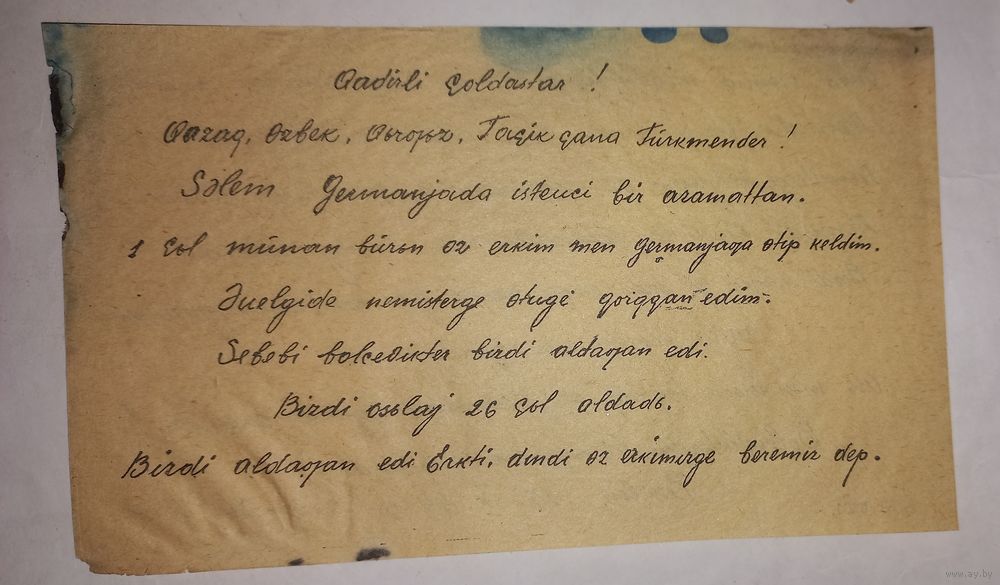 Qadirli çoldastar !
Qazaq, Ozbek, Qьrqьz, Taçik çana Türkmender !
Sәlem Germanjada isteuci bir azamattan.
1 çьl mūnan būrьn oz erkim men Germanjaƣa otip keldim.
Әuelgide nemisterge otugē qorqqan edim.
Sebebi bolcevikter birdi aldaƣan edi.
Birdi osьlaj 26 çьl aldadь.
Birdi aldaƣan edi Erkti, dindi oz erkimizge beremiz dep.
www.ay.by